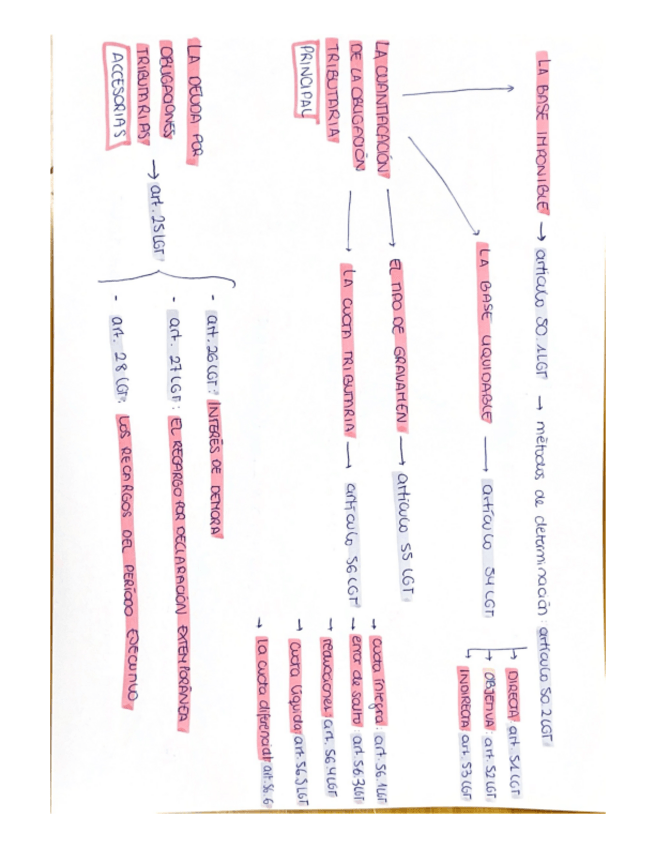 LA BASE IMPONIBLE → artículo 50.1 LGT → métodos de determinación: artículo 50.2 LGT
DIRECTA: art. 51 LGT
OBJETIVA: art. 52 LGT
INDIRECTA: art. 53 LGT
LA BASE LIQUIDABLE → artículo 54 LGT
LA CUANTIFICACIÓN
DE LA OBLIGACIÓN
TRIBUTARIA
PRINCIPAL
EL TIPO DE GRAVAMEN → artículo 55 LGT
LA CUOTA TRIBUTARIA → artículo 56 LGT
→ cuota íntegra: art. 56.1 LGT
→ error de salto: art. 56.3 LGT
→ reducciones: art. 56.4 LGT
→ cuota líquida: art. 56.5 LGT
→ la cuota diferencial: art. 56.6
LA DEUDA POR
OBLIGACIONES
TRIBUTARIAS
ACCESORIAS
→ art. 25 LGT
- art. 26 LGT: INTERÉS DE DEMORA
- art. 27 LGT: EL RECARGO POR DECLARACIÓN EXTEMPORÁNEA
- art. 28 LGT: LOS RECARGOS DEL PERÍODO EJECUTIVO